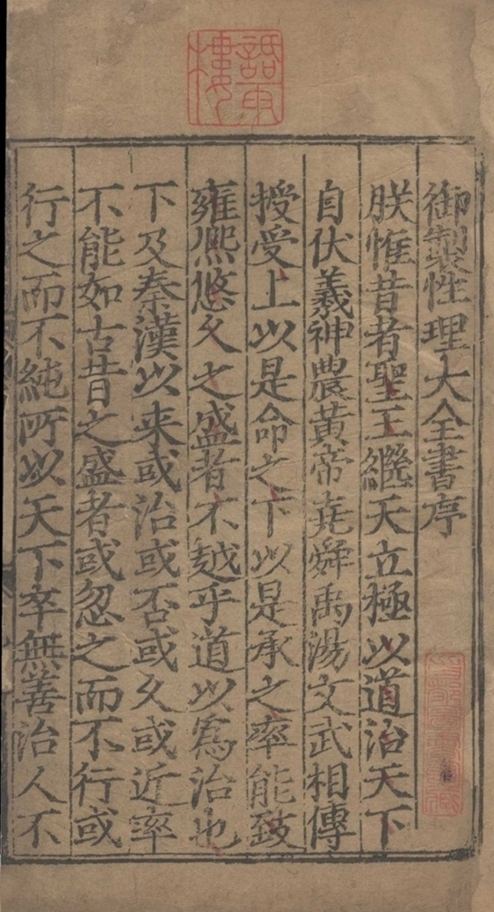 御製性理大全書序
朕惟昔者聖王繼天立極以道治天下
自伏羲神農黃帝堯舜禹湯文武相傳
授受上以是命之下以是承之率能致
雍熈悠久之盛者不越乎道以爲治也
下及秦漢以来或治或否或久或近率
不能如古昔之盛者或忽之而不行或
行之而不純所以天下卒無善治人不